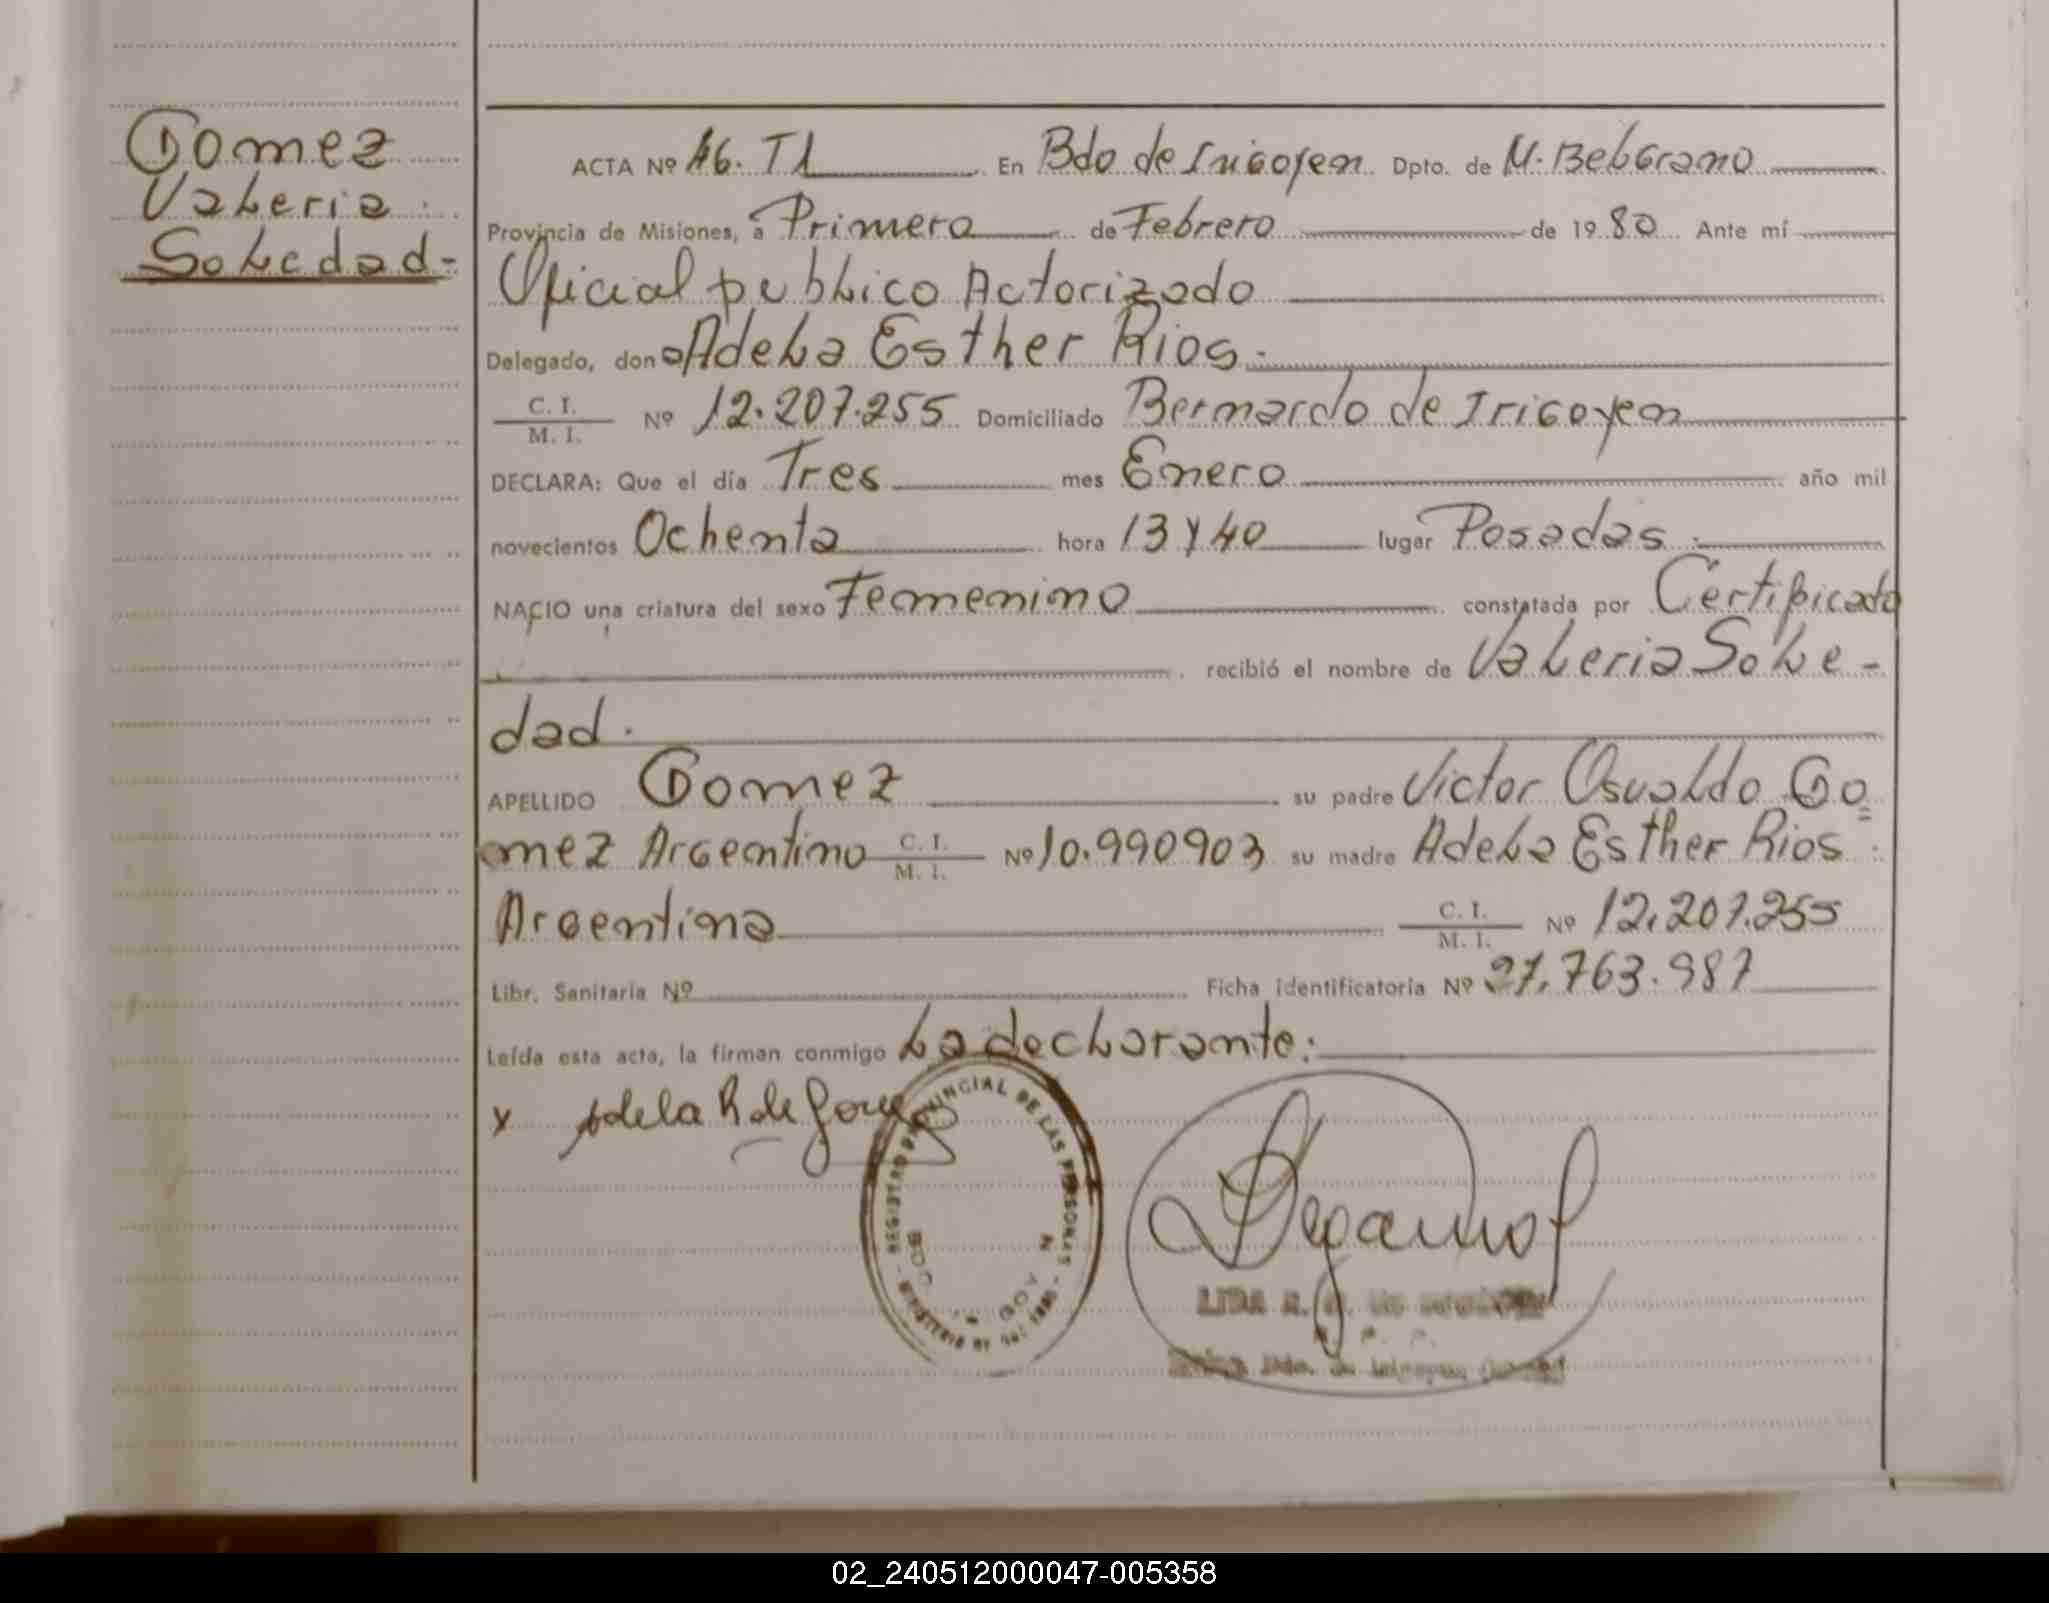 Gomez
Valeria
Soledad-
ACTA Nº 46. T1 En Bdo de Irigoyen Dpto. de M. Belgrano
Provincia de Misiones, a Primero de Febrero de 1980 Ante mí
Oficial publico Actorizado
Delegado, don a Adela Esther Rios.
C. I.
M. I.
Nº 12.207.255 Domiciliado Bernardo de Irigoyen
DECLARA: Que el día Tres mes Enero año mil
novecientos Ochenta hora 13 y 40 lugar Posadas.
NACIO una criatura del sexo Femenino constatada por Certificado
recibió el nombre de Valeria Sole-
dad.
APELLIDO Gomez su padre Victor Osvaldo Go=
mez Argentino C. I. M. I. Nº 10.990903 su madre Adela Esther Rios
Argentina C. I. M. I. Nº 12.207.255
Libr. Sanitaria Nº Ficha identificatoria Nº 27.763.987
Leída esta acta, la firman conmigo La declarante:
x Adela R de Gomez
REGISTRO PROVINCIAL DE LAS PERSONAS
02_240512000047-005358